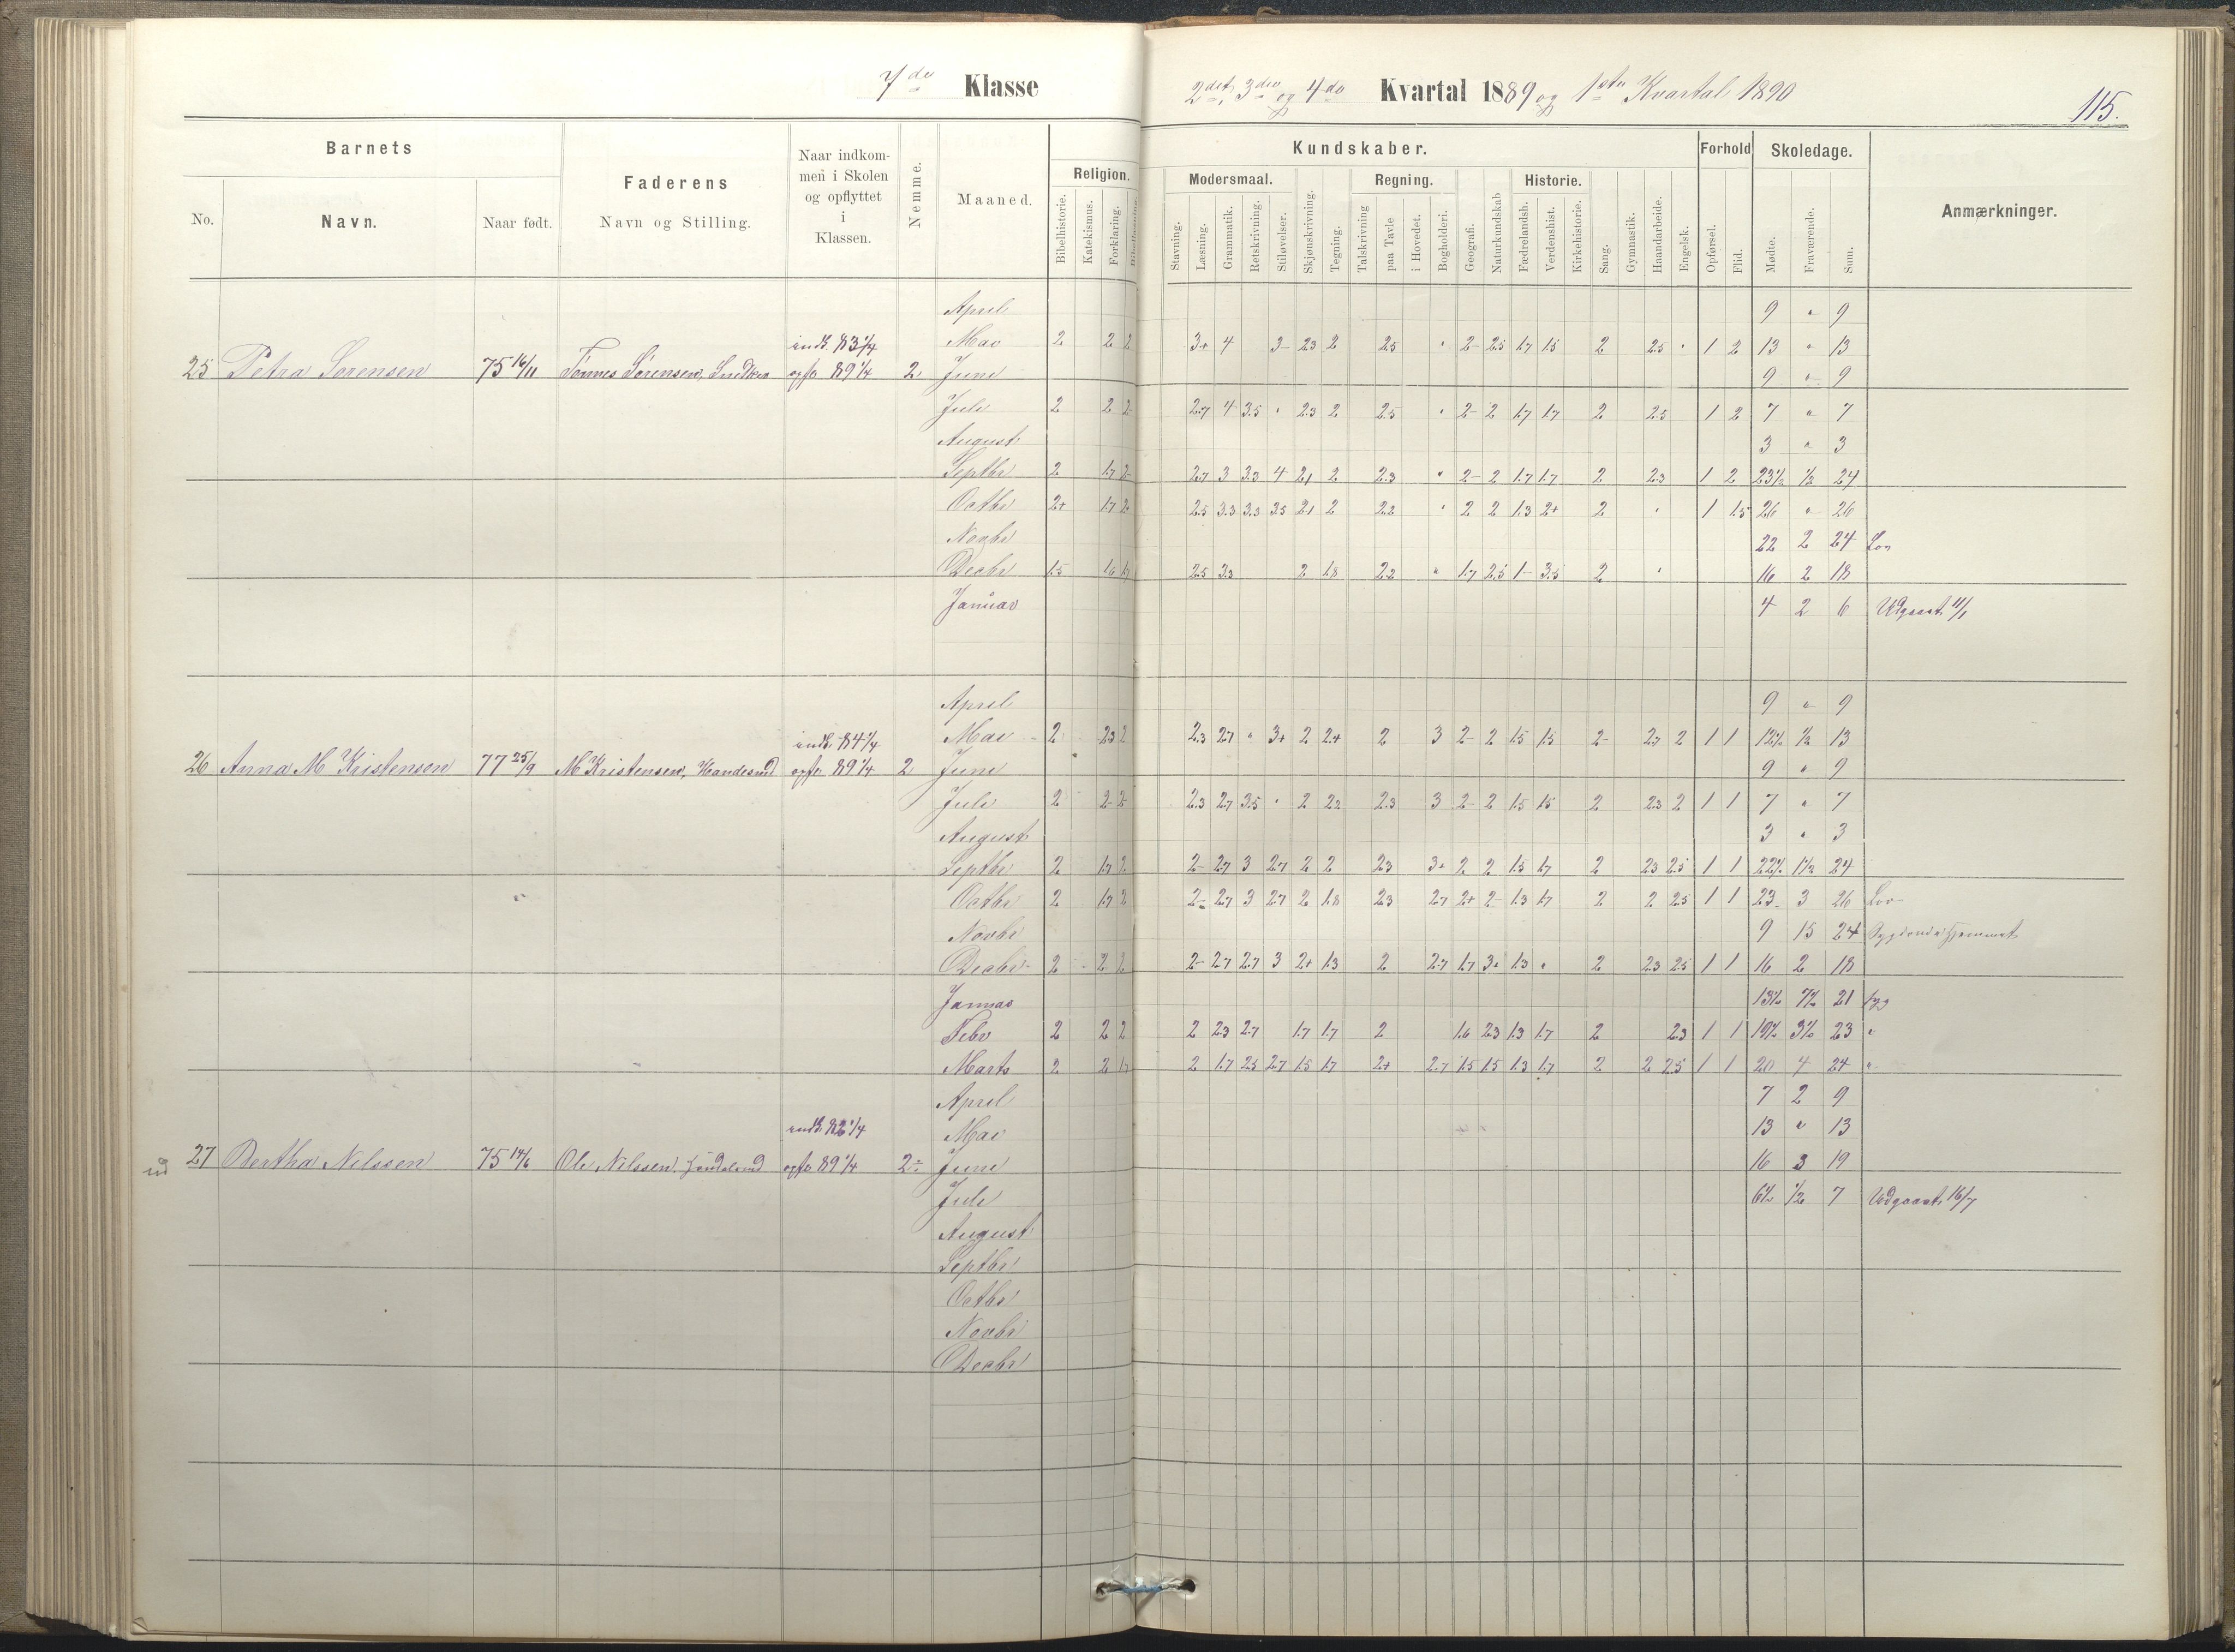 7de Klasse 2det, 3die og 4de Kvartal 1889 og 1ste Kvartal 1890
115.
Barnets Faderens Naar indkommen i Skolen og opflyttet i Klassen. Nemme. Maaned. Religion. Kundskaber. Forhold Skoledage. Anmærkninger.
No. Navn. Naar født. Navn og Stilling. Modersmaal. Regning. Historie.
Bibelhistorie. Katekismus. Forklaring. Stavning. Læsning. Grammatik. Retskrivning. Stiløvelser. Skjønskrivning. Tegning. Talskrivning paa Tavle i Hovedet. Bogholderi. Geografi. Naturkundskab Fædrelandsh. Verdenshist. Kirkehistorie. Sang. Gymnastik. Haandarbeide. Engelsk. Opførsel. Flid. Mødte. Fraværende. Sum.
April 9 " 9
indk. 83 1/4 Mai 2 2 2 3+ 4 3- 2.3 2 2.5 " 2- 2.5 1.7 1.5 2 2.5 " 1 2 13 " 13
25 Petra Sørensen 75 16/11 Tønnes Sørensen, Snedker opfl. 89 1/4 2 Juni 9 " 9
Juli 2 2 2- 2.7 4 3.5 " 2.3 2 2.5 " 2- 2 1.7 1.7 2 2.5 1 2 7 " 7
August 3 " 3
Septbr 2 1.7 2- 2.7 3 3.3 4 2.1 2 2.3 " 2- 2 1.7 1.7 2 2.3 1 2 23½ ½ 24
Octbr 2+ 1.7 2 2.5 3.3 3.3 3.5 2.1 2 2.2 " 2 2 1.3 2+ 2 " 1 1.5 26 " 26
Novbr 22 2 24 Lov
Decbr 1.5 1.6 1.7 2.5 3.3 2 1.8 2.2 " 1.7 2.5 1- 3.5 2 " 16 2 18
Januar 4 2 6 Udgaaet 11/1
April 9 " 9
indk. 84 1/4 Mai 2 2.3 2 2.3 2.7 " 3+ 2 2+ 2 3 2- 2 1.5 1.5 2- 2.7 2 1 1 12½ ½ 13
26 Anna M Kristensen 77 25/9 M Kristensen, opfl. 89 1/4 2 Juni 9 " 9
Juli 2 2- 2- 2.3 2.7 3.5 " 2 2.2 2.3 3 2- 2 1.5 1.5 2 2.3 2 1 1 7 " 7
August 3 " 3
Septbr 2 1.7 2 2- 2.7 3 2.7 2 2 2.3 3+ 2 2 1.5 1.7 2 2.3 2.5 1 1 22½ 1½ 24
Octbr 2 1.7 2 2- 2.7 3 2.7 2 1.8 2.3 2.7 2+ 2- 1.3 1.7 2 2 2.5 1 1 23 3 26 Lov
Novbr 9 15 24 Sygdom i Hjemmet
Decbr 2 2 2 2- 2.7 2.7 3 2+ 1.3 2 2.7 1.7 3+ 1.3 " 2 2.3 2.5 1 1 16 2 18
Januar 13½ 7½ 21 syg
Febr 2 2 2 2 2.3 2.7 1.7 1.7 2 1.6 2.3 1.3 1.7 2 2.3 1 1 19½ 3½ 23 "
Marts 2 2 1.7 2 1.7 2.5 2.7 1.5 1.7 2+ 2.7 1.5 1.5 1.3 1.7 2 2 2.5 1 1 20 4 24 "
April 7 2 9
indk. 82 1/4 Mai 13 " 13
ud 27 Bertha Nilssen 75 14/6 Ole Nilssen, opfl. 89 1/4 2- Juni 16 3 19
Juli 6½ ½ 7 Udgaaet 16/7
August
Septbr
Octbr
Novbr
Decbr